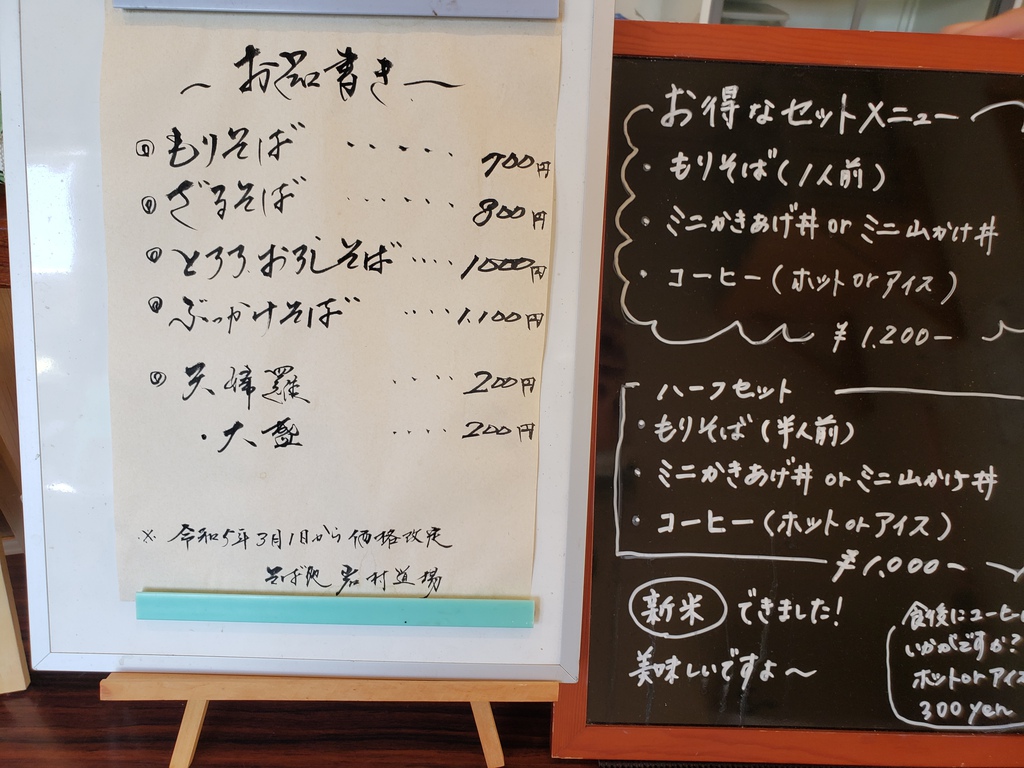 ～ お品書き ～
もりそば ・・・・・ 700円
ざるそば ・・・・・・ 800円
とろろおろしそば ・・・・ 1000円
ぶっかけそば ・・・・ 1,100円
天婦羅 ・・・・ 200円
・大盛 ・・・・ 200円
※ 令和5年3月1日から価格改定
そば処 岩村道場
お得なセットメニュー
・もりそば(1人前)
・ミニかきあげ丼 or ミニ山かけ丼
・コーヒー(ホット or アイス)
¥1,200-
ハーフセット
・もりそば(半人前)
・ミニかきあげ丼 or ミニ山かけ丼
・コーヒー(ホット or アイス)
¥1,000-
新米 できました!
美味しいですよ～
食後にコーヒー
いかがですか?
ホット or アイス
300 yen